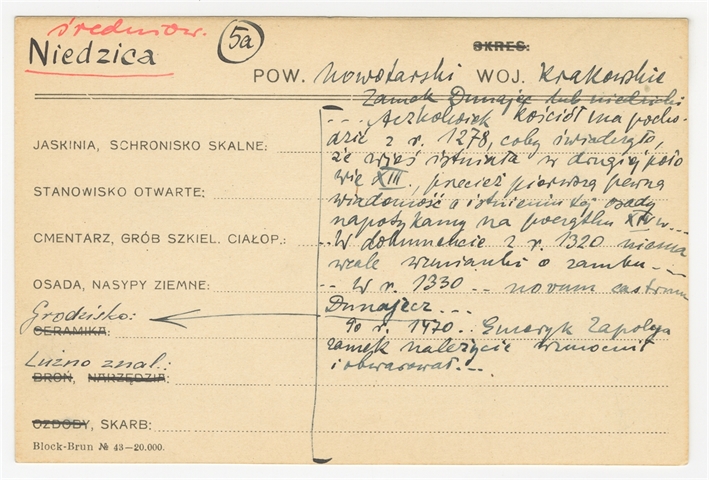 średniow.
Niedzica
5a
OKRES:
POW. Nowotarski WOJ. Krakowskie
Zamek Dunajec lub niedzicki
... Aczkolwiek kościół ma pocho-
dzić z r. 1278, coby świadczyło,
że wieś istniała w drugiej poło
wie XIII., przecież pierwszą pewną
wiadomość o istnieniu tej osady
napotykamy na początku XIV w...
JASKINIA, SCHRONISKO SKALNE:
STANOWISKO OTWARTE:
CMENTARZ, GRÓB SZKIEL. CIAŁOP.:
... W dokumencie z r. 1320 niema
wcale wzmianki o zamku...
OSADA, NASYPY ZIEMNE:
.. W r. 1330 .. novum castrum
Dunajecz...
Grodzisko:
CERAMIKA:
Po r. 1470.. Emeryk Zapolya
zamek należycie wzmocnił
i obwarował...
Luźno znal.:
BROŃ, NARZĘDZIA:
OZDOBY, SKARB:
Block-Brun № 43—20.000.